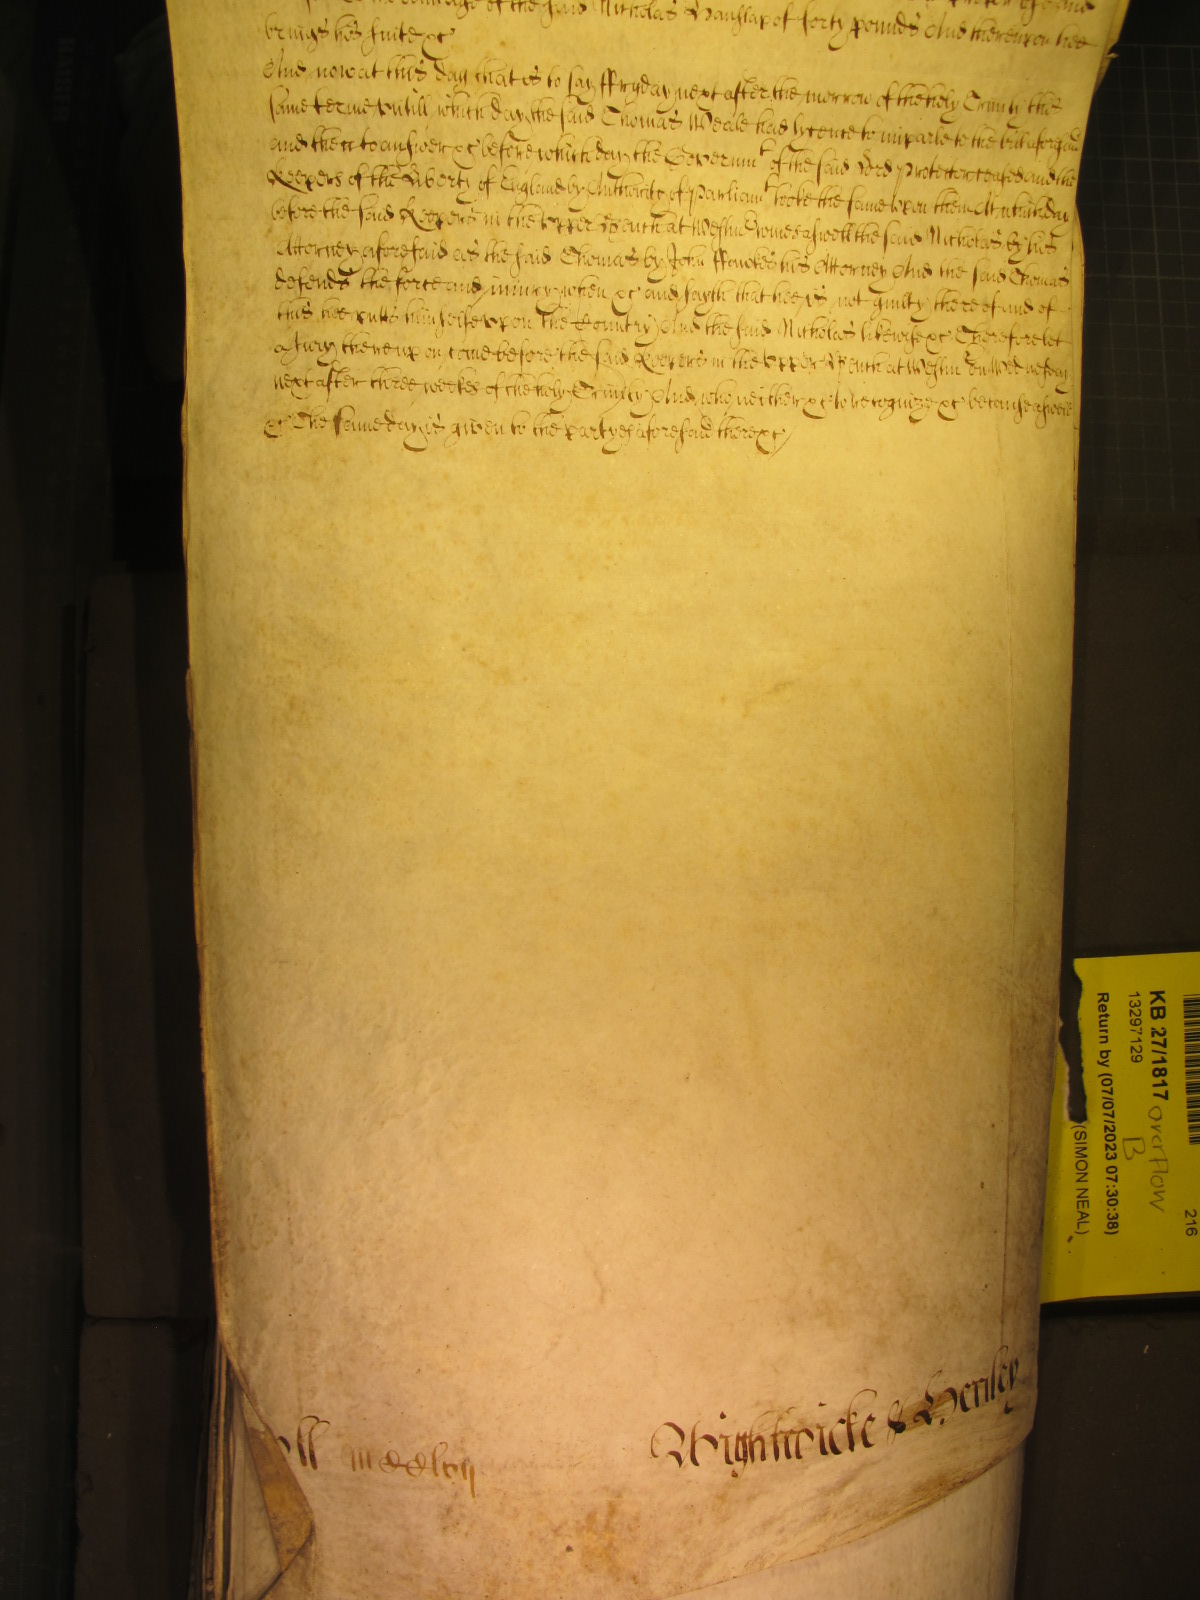 to the damage of the said Nicholas Hanslap of forty pounds And thereupon hee
brings his suite xc
And now at this day that is to say ffryday next after the morrow of the holy Trinity this
same terme untill which day the said Thomas Weale had lycence to imparle to the bill aforesaid
and then to answer xc before which day the Governmt of the said Lord Protector ceased and the
Keepers of the Liberty of England by Authority of Parliamt tooke the same upon them At which day
before the said Keepers in the upper Bench at Westmr comes aswell the said Nicholas by his
Attorney aforesaid as the said Thomas by John ffowkes his Attorney And the said Thomas
defends the force and iniury when xc and sayth that hee is not guilty thereof and of
this hee putts himselfe upon the Country And the said Nicholas likewise xc Therefore let
a Jury thereupon come before the said Keepers in the upper Bench at Westmr on Wednesday
next after three weekes of the holy Trinity And who neither xc to recognize xc because aswell
xc The same day is given to the partyes aforesaid there xc
Wightwicke & Henley
KB 27/1817
13297129
Return by (07/07/2023 07:30:38)
(SIMON NEAL)
216
overflow
B